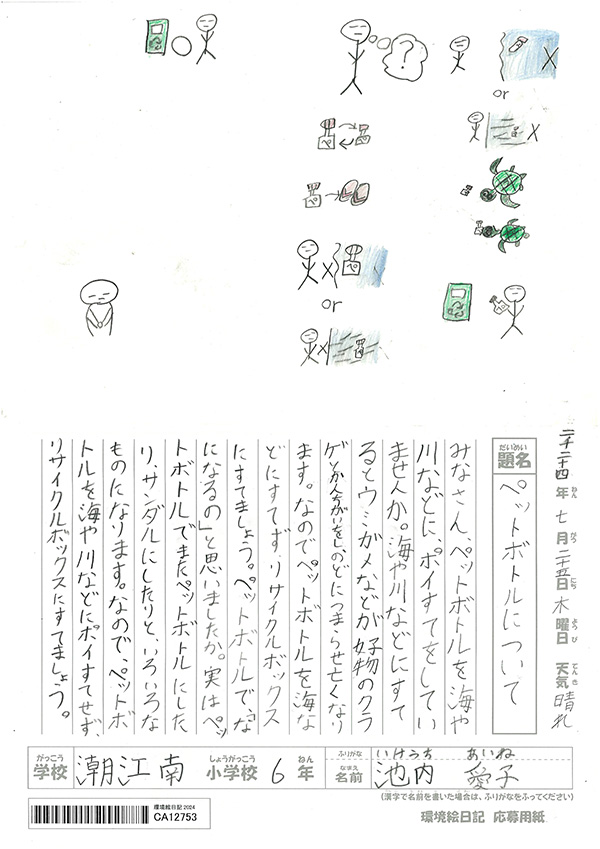 ?
X
or
X
ペ
ペ
ペ
X
or
X
二千二十四年 七月 二十五日 木曜日 天気 晴れ
ねん がつ にち ようび てんき
だいめい
題名 ペットボトルについて
みなさん、ペットボトルを海や
川などに、ポイすてをしてい
ませんか。海や川などにすて
るとウミガメなどが好物のクラ
ゲとかんちがいをし、のどにつまらせ亡くなり
ます。なのでペットボトルを海な
どにすてず、リサイクルボックス
にすてましょう。「ペットボトルで、な
になるの」と思いましたか。実はペッ
トボトルでまたペットボトルにした
り、サンダルにしたりと、いろいろな
ものになります。なので、ペットボ
トルを海や川などにポイすてせず、
リサイクルボックスにすてましょう。
がっこう しょうがっこう ねん ふりがな いけうち あいね
学校 潮江南 小学校 6年 なまえ 名前 池内 愛子
(漢字で名前を書いた場合は、ふりがなをふってください)
環境絵日記 2024
CA12753
環境絵日記 応募用紙